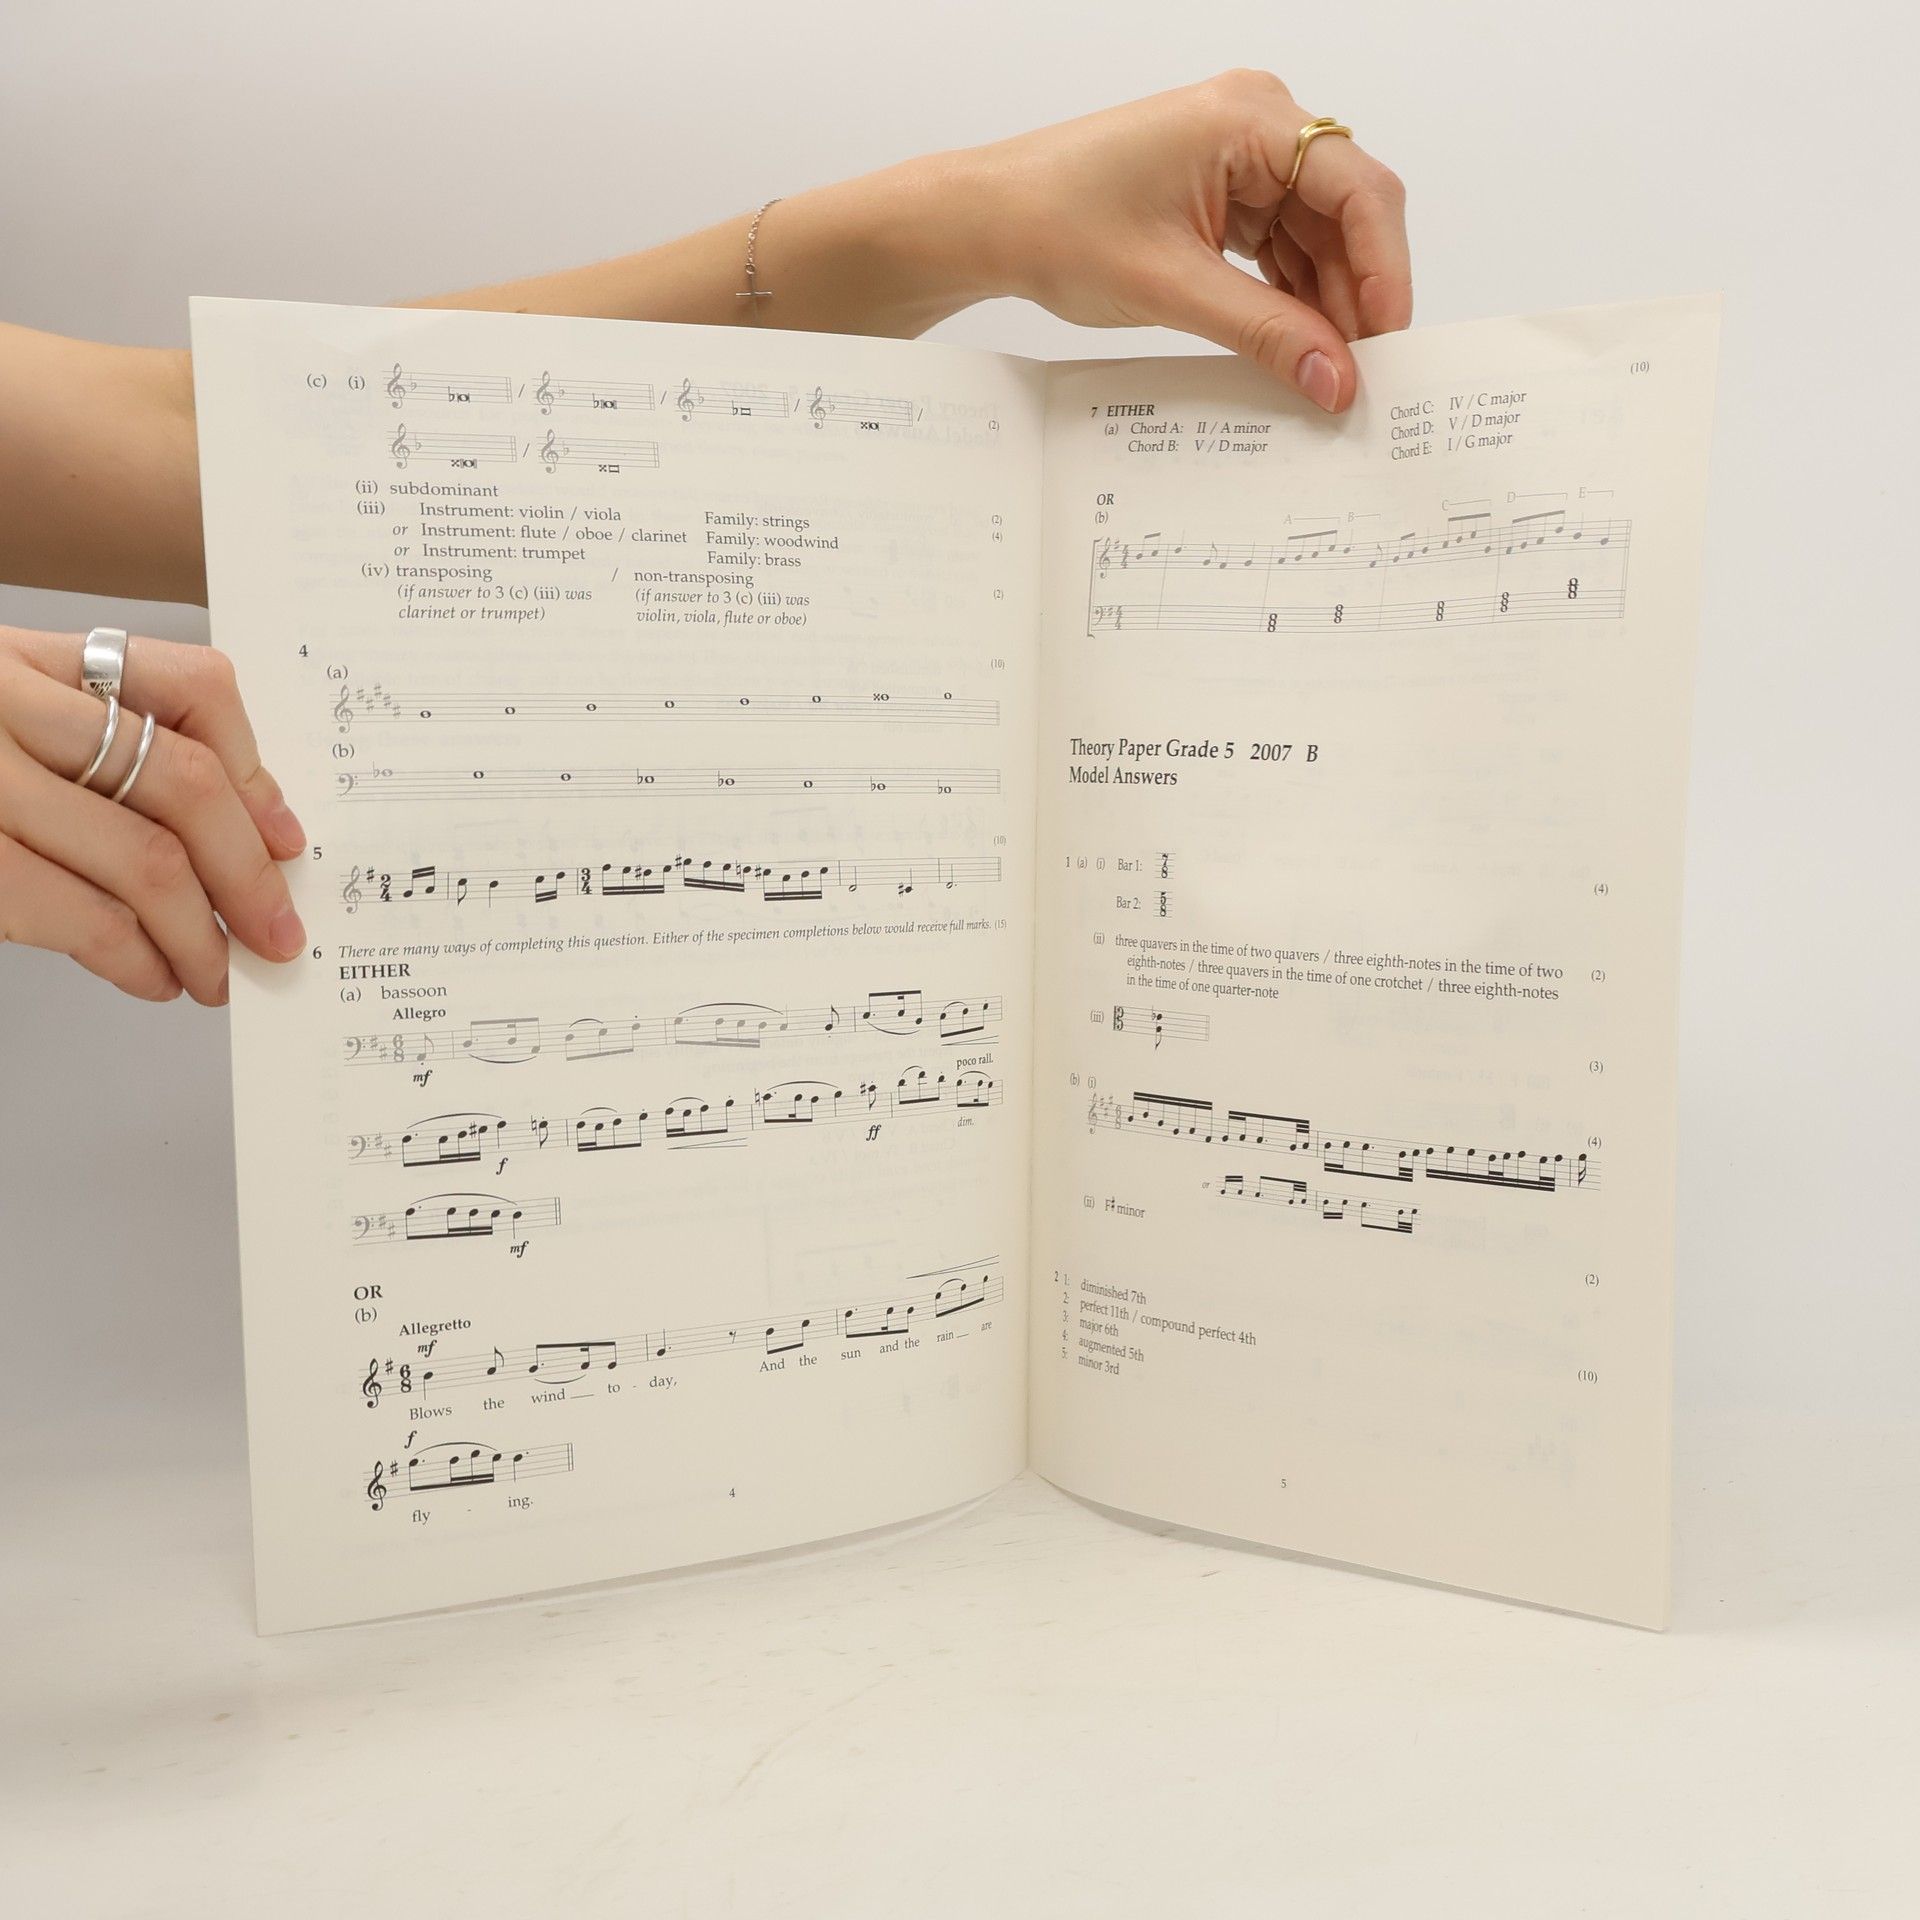 (c) (i) / / / /
(2)
/
(ii) subdominant
(2)
(iii) Instrument: violin / viola Family: strings
(4)
or Instrument: flute / oboe / clarinet Family: woodwind
or Instrument: trumpet Family: brass
(iv) transposing / non-transposing
(2)
(if answer to 3 (c) (iii) was (if answer to 3 (c) (iii) was
clarinet or trumpet) violin, viola, flute or oboe)
4
(10)
(a)
(b)
5
(10)
2 4 3 4
6 There are many ways of completing this question. Either of the specimen completions below would receive full marks. (15)
EITHER
(a) bassoon
Allegro
6 8
mf
poco rall.
f ff dim.
mf
OR
(b)
Allegretto
mf
6 8
Blows the wind to - day, And the sun and the rain are
f
fly - ing.
4
(10)
7 EITHER
(a) Chord A: II / A minor Chord C: IV / C major
Chord B: V / D major Chord D: V / D major
Chord E: I / G major
OR
(b)
A B C D E
4 4
4 4
Theory Paper Grade 5 2007 B
Model Answers
1 (a) (i) Bar 1: 7 8
(4)
Bar 2: 5 8
(ii) three quavers in the time of two quavers / three eighth-notes in the time of two
eighth-notes / three quavers in the time of one crotchet / three eighth-notes
in the time of one quarter-note
(2)
(iii)
(3)
(b) (i)
6 8
(4)
or
(ii) F♯ minor
(2)
2 1: diminished 7th
2: perfect 11th / compound perfect 4th
3: major 6th
4: augmented 5th
5: minor 3rd
(10)
5